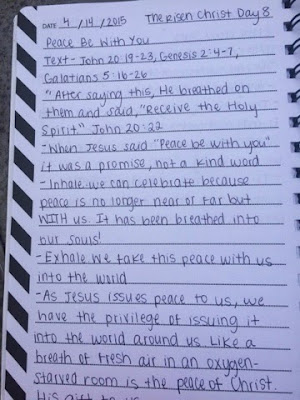 DATE 4/14/2015 The Risen Christ Day 8
Peace Be With You
Text- John 20:19-23, Genesis 2:4-7,
Galatians 5:16-26
"After saying this, He breathed on
them and said, "Receive the Holy
Spirit" John 20:22
-When Jesus said "Peace be with you"
it was a promise, not a kind word
-Inhale. we can celebrate because
peace is no longer near or far but
WITH us. It has been breathed into
our souls!
-Exhale. We take this peace with us
into the world
-As Jesus issues peace to us, we
have the privilege of issuing it
into the world around us. Like a
breath of fresh air in an oxygen-
starved room is the peace of Christ.
His gift to us